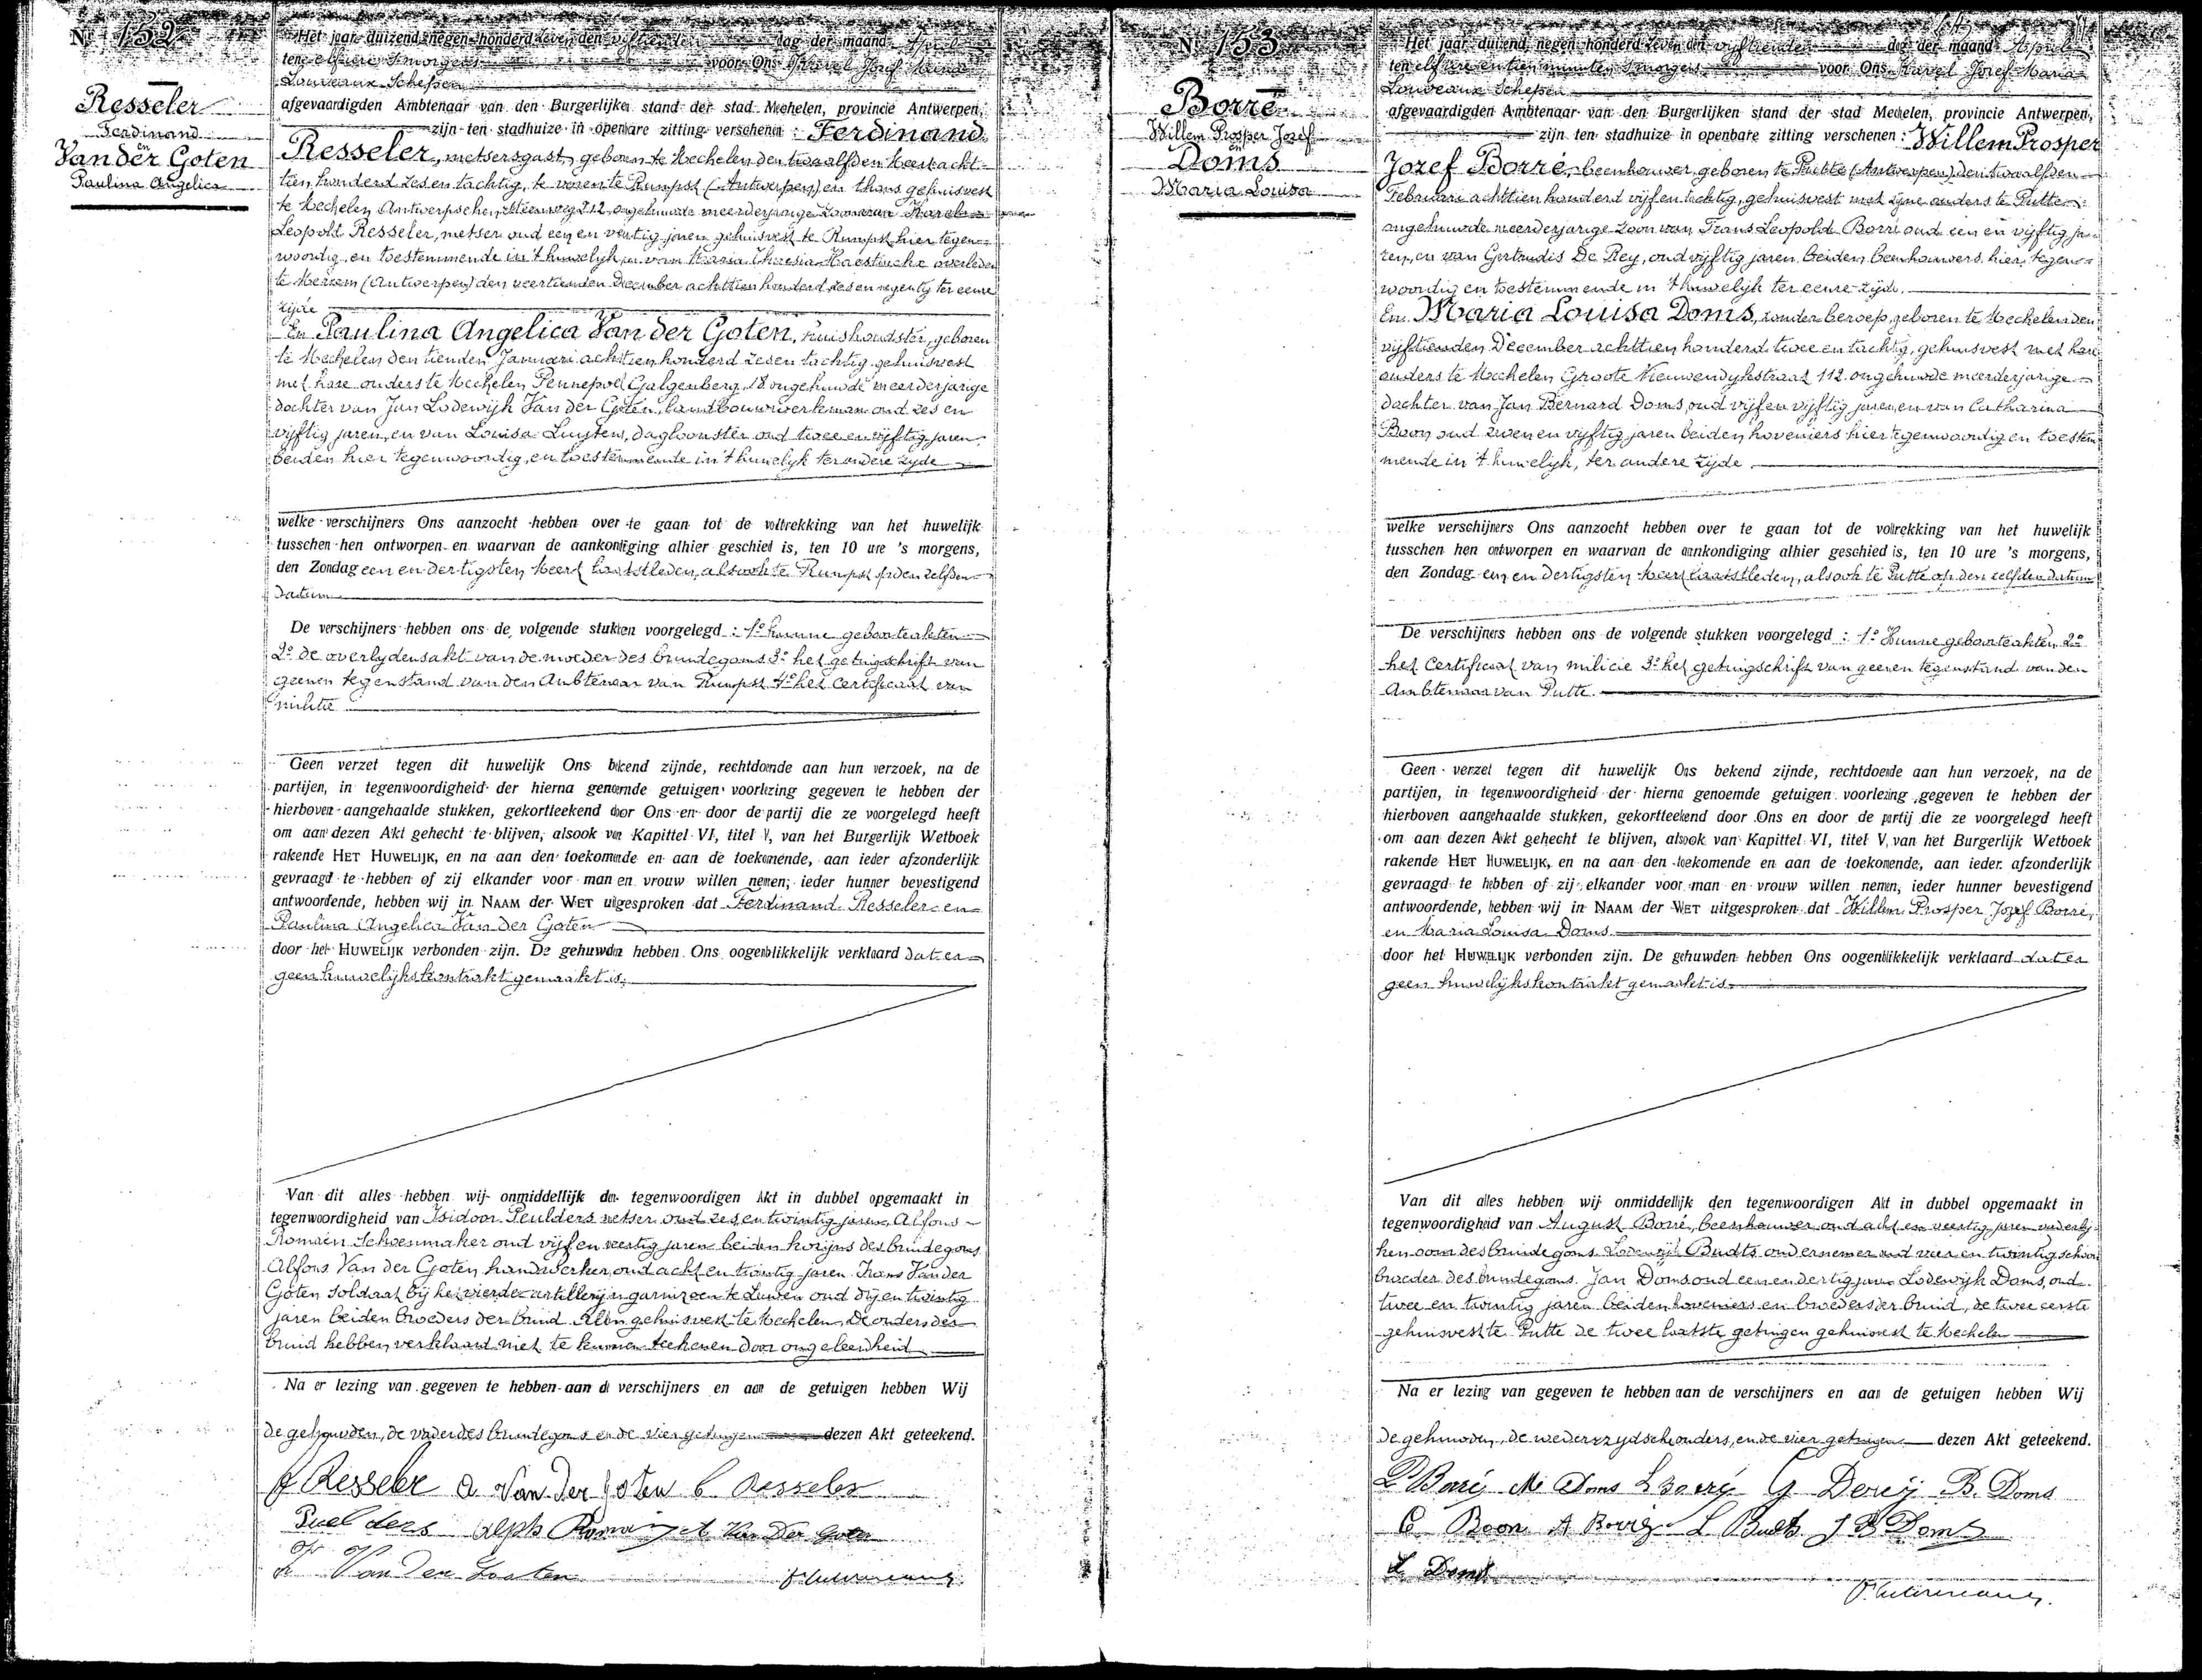 Nr 152
Resseler
Ferdinand
en
Van der Goten
Paulina Angelica
Het jaar duizend negen honderd zeven den vijftienden dag der maand April
ten elf ure 's morgens voor Ons Karel Jozef Maria
Louveaux Schepen
afgevaardigden Ambtenaar van den Burgerlijken stand der stad Mechelen, provincie Antwerpen,
zijn ten stadhuize in openbare zitting verschenen : Ferdinand
Resseler, metsersgast, geboren te Mechelen den twaalfden Meert acht-
tien honderd zes en tachtig, te voren te Rumpst (Antwerpen) en thans gehuisvest
te Mechelen Antwerpschen Steenweg 212 ongehuwde meerderjarige zoon van Karel
Leopold Resseler, metser oud een en veertig jaren gehuisvest te Rumpst hier tegen-
woordig en toestemmende in 't huwelijk en van Maria Theresia overleden
te Merxem (Antwerpen) den veertienden December achttien honderd zes en negentig ter eenre
zijde
En Paulina Angelica Van der Goten, huishoudster, geboren
te Mechelen den tienden Januari achttien honderd zes en tachtig gehuisvest
met hare ouders te Mechelen Pennepoel Galgenberg, 18 ongehuwde meerderjarige
dochter van Jan Lodewijk Van der Goten, landbouwwerkman oud zes en
vijftig jaren, en van Louisa Luyten, dagloonster oud twee en vijftig jaren
beiden hier tegenwoordig, en toestemmende in 't huwelijk ter andere zijde
welke verschijners Ons aanzocht hebben over te gaan tot de voltrekking van het huwelijk
tusschen hen ontworpen en waarvan de aankondiging alhier geschied is, ten 10 ure 's morgens,
den Zondag een en dertigsten Meert laatstleden, alsook te Rumpst op den zelfden
datum
De verschijners hebben ons de volgende stukken voorgelegd : 1° hunne geboorteakten
2° de overlydensakt van de moeder des bruidegoms 3° het getuigschrift van
geenen tegenstand van den Ambtenaar van Rumpst 4° het certificaat van
militie
Geen verzet tegen dit huwelijk Ons bekend zijnde, rechtdoende aan hun verzoek, na de
partijen, in tegenwoordigheid der hierna genoemde getuigen voorlezing gegeven te hebben der
hierboven aangehaalde stukken, gekortteekend door Ons en door de partij die ze voorgelegd heeft
om aan dezen Akt gehecht te blijven, alsook van Kapittel VI, titel V, van het Burgerlijk Wetboek
rakende HET HUWELIJK, en na aan den toekomende en aan de toekomende, aan ieder afzonderlijk
gevraagd te hebben of zij elkander voor man en vrouw willen nemen; ieder hunner bevestigend
antwoordende, hebben wij in NAAM der WET uitgesproken dat Ferdinand Resseler en
Paulina Angelica Van der Goten
door het HUWELIJK verbonden zijn. De gehuwden hebben Ons oogenblikkelijk verklaard dat er
geen huwelijkskontrakt gemaakt is.
Van dit alles hebben wij onmiddellijk den tegenwoordigen Akt in dubbel opgemaakt in
tegenwoordigheid van Isidoor Peulders metser oud zes en twintig jaren, Alfons
Romain Schoenmaker oud vijf en veertig jaren beiden kozijns des bruidegoms
Alfons Van der Goten handwerker, oud acht en twintig jaren Frans Van der
Goten soldaat bij het vierde artillerij in garnizoen te Leuven oud dry en twintig
jaren beiden broeders der bruid Allen gehuisvest te Mechelen, De ouders der
bruid hebben verklaard niet te kunnen teekenen door ongeleerdheid
Na er lezing van gegeven te hebben aan de verschijners en aan de getuigen hebben Wij
de gehuwden, de vader des bruidegoms en de vier getuigen dezen Akt geteekend.
F Resseler A Van der Goten C Resseler
Puelders Alph Romain A Van Der Goten
Fr Van Der Gooten
Nr 153
Borré
Willem Prosper Jozef
en
Doms
Maria Louisa
Het jaar duizend negen honderd zeven den vijftienden dag der maand April
ten elf ure en tien minuten 's morgens voor Ons Karel Jozef Maria
Louveaux Schepen
afgevaardigden Ambtenaar van den Burgerlijken stand der stad Mechelen, provincie Antwerpen,
zijn ten stadhuize in openbare zitting verschenen : Willem Prosper
Jozef Borré, beenhouwer, geboren te Putte (Antwerpen) den twaalfden
Februari achttien honderd vijf en tachtig, gehuisvest met zijne ouders te Putte
ongehuwde meerderjarige zoon van Frans Leopold Borré oud een en vijftig ja-
ren, en van Gertrudis De Rey, oud vijftig jaren, beiden beenhouwers hier tegen-
woordig en toestemmende in 't huwelijk ter eenre zijde.
En Maria Louisa Doms, zonder beroep, geboren te Mechelen den
vijftienden December achttien honderd twee en tachtig, gehuisvest met hare
ouders te Mechelen Groote Nieuwendykstraat 112 ongehuwde meerderjarige
dochter van Jan Bernard Doms, oud vijf en vijftig jaren, en van Catharina
Boon oud zeven en vijftig jaren beiden hoveniers hier tegenwoordig en toestem-
mende in 't huwelijk, ter andere zijde
welke verschijners Ons aanzocht hebben over te gaan tot de voltrekking van het huwelijk
tusschen hen ontworpen en waarvan de aankondiging alhier geschied is, ten 10 ure 's morgens,
den Zondag een en dertigsten Meert laatstleden, alsook te Putte op den zelfden datum
De verschijners hebben ons de volgende stukken voorgelegd : 1° Hunne geboorteakten, 2°
het Certificaat van milicie 3° het getuigschrift van geenen tegenstand van den
Ambtenaar van Putte.
Geen verzet tegen dit huwelijk Ons bekend zijnde, rechtdoende aan hun verzoek, na de
partijen, in tegenwoordigheid der hierna genoemde getuigen voorlezing gegeven te hebben der
hierboven aangehaalde stukken, gekortteekend door Ons en door de partij die ze voorgelegd heeft
om aan dezen Akt gehecht te blijven, alsook van Kapittel VI, titel V, van het Burgerlijk Wetboek
rakende HET HUWELIJK, en na aan den toekomende en aan de toekomende, aan ieder afzonderlijk
gevraagd te hebben of zij elkander voor man en vrouw willen nemen, ieder hunner bevestigend
antwoordende, hebben wij in NAAM der WET uitgesproken dat Willem Prosper Jozef Borré,
en Maria Louisa Doms
door het HUWELIJK verbonden zijn. De gehuwden hebben Ons oogenblikkelijk verklaard dat er
geen huwelijkskontrakt gemaakt is
Van dit alles hebben wij onmiddellijk den tegenwoordigen Akt in dubbel opgemaakt in
tegenwoordigheid van August Borré, beenhouwer oud acht en veertig jaren vaderlij-
ken oom des bruidegoms Lodewijk Budts ondernemer oud vier en twintig schoon
broeder des bruidegoms. Jan Doms oud een en dertig jaren Lodewijk Doms, oud
twee en twintig jaren beiden hoveniers en broeders der bruid, de twee eerste
gehuisvest te Putte de twee laatste getuigen gehuisvest te Mechelen
Na er lezing van gegeven te hebben aan de verschijners en aan de getuigen hebben Wij
de gehuwden, de wederzydsche ouders, en de vier getuigen dezen Akt geteekend.
P Borré M Doms L Borré G Dereÿ B. Doms
C Boon A Borré L Budts J B Doms
L Doms